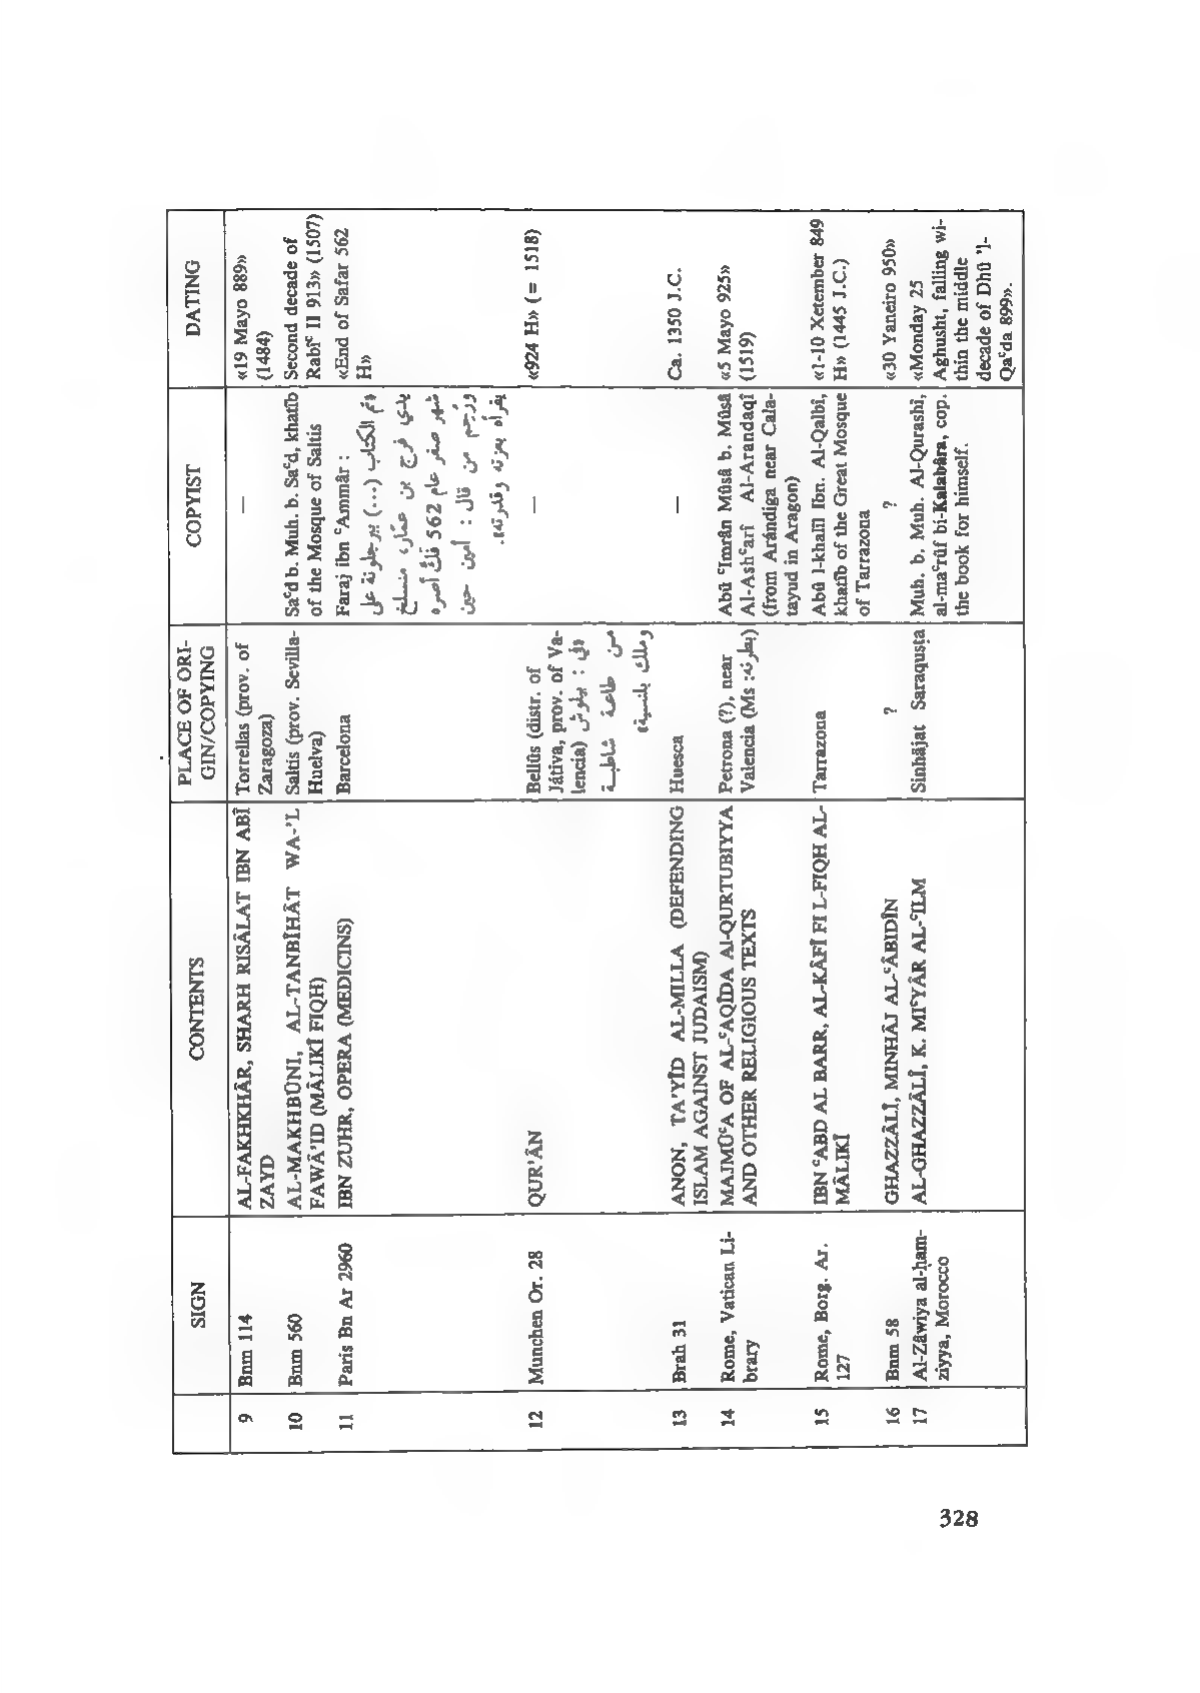 SIGN
CONTENTS
PLACE OF ORI-
GIN/COPYING
COPYIST
DATING
9
Bnm 114
AL-FAKHKHÂR, SHARH RISÂLAT IBN ABÎ
ZAYD
Torrellas (prov. of
Zaragoza)
—
«19 Mayo 889»
(1484)
10
Bnm 560
AL-MAKHBŪNI, AL-TANBÎHÂT WA-'L
FAWÂ'ID (MÂLIKÎ FIQH)
Saltís (prov. Sevilla-
Huelva)
Saᶜd b. Muh. b. Saᶜd, khatîb
of the Mosque of Saltis
Second decade of
Rabîᶜ II 913» (1507)
11
Paris Bn Ar 2960
IBN ZUHR, OPERA (MEDICINS)
Barcelona
Faraj ibn ᶜAmmâr :
«تم الكتاب (...) ببرجلونة على
يدي فرج بن عمّار، منسلخ
شهر صفر عام 562 فكّ أسره
ورُحم من قال : أمين حين
يقرأه بعزته وقدرته».
«End of Safar 562
H»
12
Munchen Or. 28
QUR'ÂN
Bellûs (distr. of
Játiva, prov. of Va-
lencia) «في : بيلوش
من طاعة شاطبة
وملك بلنسية»
—
«924 H» (= 1518)
13
Brah 31
ANON, TA'YÎD AL-MILLA (DEFENDING
ISLAM AGAINST JUDAISM)
Huesca
—
Ca. 1350 J.C.
14
Rome, Vatican Li-
brary
MAJMÛᶜA OF AL-ᶜAQÎDA Al-QURTUBIYYA
AND OTHER RELIGIOUS TEXTS
Petrona (?), near
Valencia (Ms :بطرنه)
Abû ᶜImrân Mûsâ b. Mûsâ
Al-Ashᶜarî Al-Arandaqî
(from Arándiga near Cala-
tayud in Aragon)
«5 Mayo 925»
(1519)
15
Rome, Borg. Ar.
127
IBN ᶜABD AL BARR, AL-KÂFÎ FI L-FIQH AL-
MÂLIKÎ
Tarrazona
Abû l-khalîl Ibn. Al-Qalbî,
khatîb of the Great Mosque
of Tarrazona
«1-10 Xetember 849
H» (1445 J.C.)
16
Bnm 58
GHAZZÂLÎ, MINHÂJ AL-ᶜÂBIDÎN
?
?
«30 Yaneiro 950»
17
Al-Zâwiya al-ḥam-
ziyya, Morocco
AL-GHAZZÂLÎ, K. MIᶜYÂR AL-ᶜILM
Sinhâjat Saraqusṭa
Muh. b. Muh. Al-Qurashî,
al-maᶜrûf bi-Kalabâra, cop.
the book for himself.
«Monday 25
Aghusht, falling wi-
thin the middle
decade of Dhû 'l-
Qaᶜda 899».
328